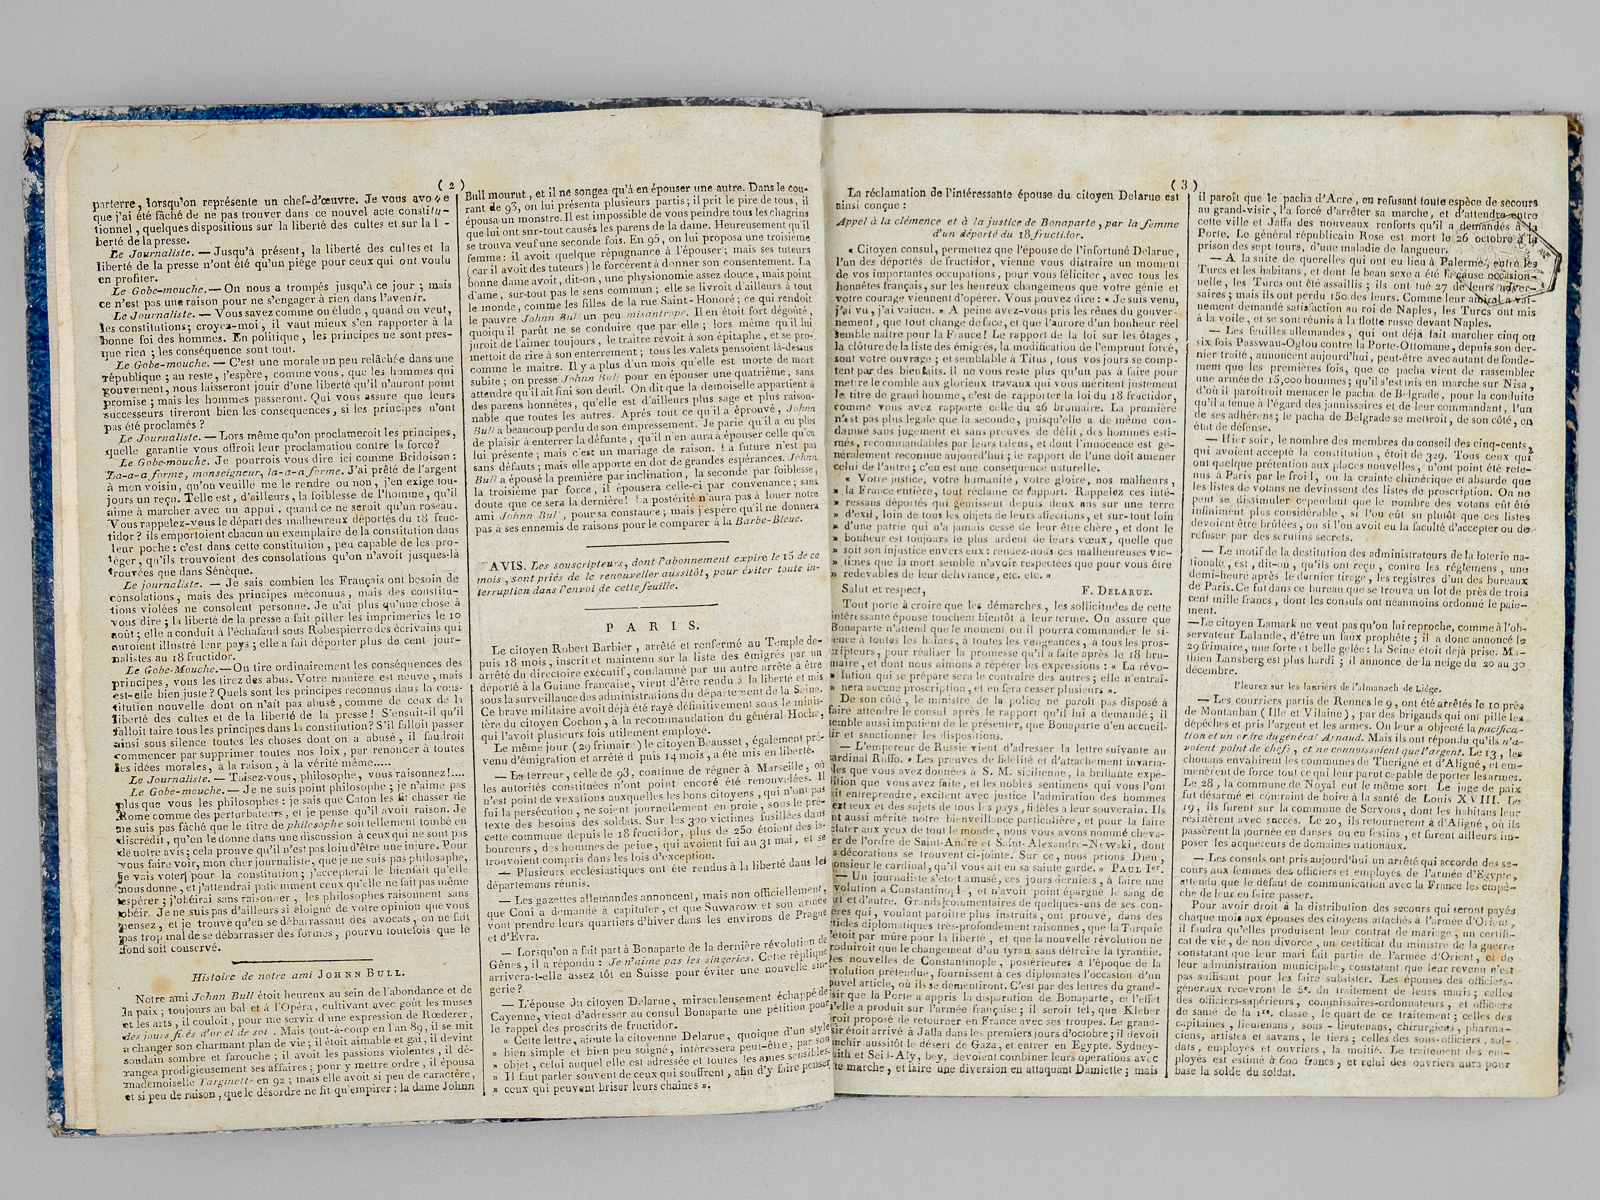 ( 2 )
parterre, lorsqu'on représente un chef-d'œuvre. Je vous avoue
que j'ai été fâché de ne pas trouver dans ce nouvel acte constitu-
tionnel, quelques dispositions sur la liberté des cultes et sur la li-
berté de la presse.
Le Journaliste. — Jusqu'à présent, la liberté des cultes et la
liberté de la presse n'ont été qu'un piége pour ceux qui ont voulu
en profiter.
Le Gobe-mouche. — On nous a trompés jusqu'à ce jour ; mais
ce n'est pas une raison pour ne s'engager à rien dans l'avenir.
Le Journaliste. — Vous savez comme on élude, quand on veut,
les constitutions; croyez-moi, il vaut mieux s'en rapporter à la
bonne foi des hommes. En politique, les principes ne sont pres-
que rien ; les conséquences sont tout.
Le Gobe-mouche. — C'est une morale un peu relâchée dans une
république ; au reste, j'espère, comme vous, que les hommes qui
gouvernent, nous laisseront jouir d'une liberté qu'il n'auront point
promise ; mais les hommes passeront. Qui vous assure que leurs
successeurs tireront bien les conséquences, si les principes n'ont
pas été proclamés ?
Le Journaliste. — Lors même qu'on proclameroit les principes,
quelle garantie vous offriroit leur proclamation contre la force?
Le Gobe-mouche. Je pourrois vous dire ici comme Bridoison :
La-a-a forme, monseigneur, la-a-a forme. J'ai prêté de l'argent
à mon voisin, qu'on veuille me le rendre ou non, j'en exige tou-
jours un reçu. Telle est, d'ailleurs, la foiblesse de l'homme, qu'il
aime à marcher avec un appui, quand ce ne seroit qu'un roseau.
Vous rappelez-vous le départ des malheureux déportés du 18 fruc-
tidor ? ils emportoient chacun un exemplaire de la constitution dans
leur poche : c'est dans cette constitution, peu capable de les pro-
téger, qu'ils trouvoient des consolations qu'on n'avoit jusques-là
trouvées que dans Sénèque.
Le journaliste. — Je sais combien les Français ont besoin de
consolations, mais des principes méconnus, mais des constitu-
tions violées ne consolent personne. Je n'ai plus qu'une chose à
vous dire ; la liberté de la presse a fait piller les imprimeries le 10
août ; elle a conduit à l'échafaud sous Robespierre des écrivains qui
auroient illustré leur pays ; elle a fait déporter plus de cent jour-
nalistes au 18 fructidor.
Le Gobe-Mouche. — On tire ordinairement les conséquences des
principes, vous les tirez des abus. Votre manière est neuve, mais
est-elle bien juste? Quels sont les principes reconnus dans la cons-
titution nouvelle dont on n'ait pas abusé, comme de ceux de la
liberté des cultes et de la liberté de la presse ! S'ensuit-il qu'il
falloit taire tous les principes dans la constitution ? S'il falloit passer
ainsi sous silence toutes les choses dont on a abusé, il faudroit
commencer par supprimer toutes nos loix, par renoncer à toutes
les idées morales, à la raison, à la vérité même.....
Le Journaliste. — Taisez-vous, philosophe, vous raisonnez !....
Le Gobe-mouche. — Je ne suis point philosophe ; je n'aime pas
plus que vous les philosophes : je sais que Caton les fit chasser de
Rome comme des perturbateurs, et je pense qu'il avoit raison. Je
ne suis pas fâché que le titre de philosophe soit tellement tombé en
discrédit, qu'on le donne dans une discussion à ceux qui ne sont pas
de notre avis ; cela prouve qu'il n'est pas loin d'être une injure. Pour
vous faire voir, mon cher journaliste, que je ne suis pas philosophe,
je vais voter pour la constitution ; j'accepterai le bienfait qu'elle
nous donne, et j'attendrai patiemment ceux qu'elle ne fait pas même
espérer ; j'obéirai sans raisonner, les philosophes raisonnent sans
obéir. Je ne suis pas d'ailleurs si éloigné de votre opinion que vous
pensez, et je trouve qu'en se débarrassant des avocats, on ne fait
pas trop mal de se débarrasser des formes, pourvu toutefois que le
fond soit conservé.
Histoire de notre ami JOHNN BULL.
Notre ami Johnn Bull étoit heureux au sein de l'abondance et de
la paix ; toujours au bal et à l'Opéra, cultivant avec goût les muses
et les arts, il couloit, pour me servir d'une expression de Rœderer,
des jours filés d'or et de soi. Mais tout-à-coup en l'an 89, il se mit
à changer son charmant plan de vie ; il étoit aimable et gai, il devint
soudain sombre et farouche ; il avoit les passions violentes, il dé-
rangea prodigieusement ses affaires ; pour y mettre ordre, il épousa
mademoiselle Targinett- en 92 ; mais elle avoit si peu de caractère,
et si peu de raison, que le désordre ne fit qu'empirer : la dame Johnn
Bull mourut, et il ne songea qu'à en épouser une autre. Dans le cou-
rant de 93, on lui présenta plusieurs partis ; il prit le pire de tous, il
épousa un monstre. Il est impossible de vous peindre tous les chagrins
que lui ont sur-tout causés les parens de la dame. Heureusement qu'il
se trouva veuf une seconde fois. En 95, on lui proposa une troisième
femme : il avoit quelque répugnance à l'épouser ; mais ses tuteurs
(car il avoit des tuteurs) le forcèrent à donner son consentement. La
bonne dame avoit, dit-on, une physionomie assez douce, mais point
d'ame, sur-tout pas le sens commun ; elle se livroit d'ailleurs à tout
le monde, comme les filles de la rue Saint-Honoré ; ce qui rendoit
le pauvre Johnn Bull un peu misantrope. Il en étoit fort dégoûté,
quoiqu'il parût ne se conduire que par elle ; lors même qu'il lui
juroit de l'aimer toujours, le traître rêvoit à son épitaphe, et se pro-
mettoit de rire à son enterrement ; tous les valets pensoient là-dessus
comme le maître. Il y a plus d'un mois qu'elle est morte de mort
subite ; on presse Johnn Bull pour en épouser une quatrième, sans
attendre qu'il ait fini son deuil. On dit que la demoiselle appartient à
des parens honnêtes, qu'elle est d'ailleurs plus sage et plus raison-
nable que toutes les autres. Après tout ce qu'il a éprouvé, Johnn
Bull a beaucoup perdu de son empressement. Je parie qu'il a eu plus
de plaisir à enterrer la défunte, qu'il n'en aura à épouser celle qu'on
lui présente ; mais c'est un mariage de raison. La future n'est pas
sans défauts ; mais elle apporte en dot de grandes espérances. Johnn
Bull a épousé la première par inclination, la seconde par foiblesse,
la troisième par force, il épousera celle-ci par convenance ; sans
doute que ce sera la dernière! La postérité n'aura pas à louer notre
ami Johnn Bull, pour sa constance ; mais j'espère qu'il ne donnera
pas à ses ennemis de raisons pour le comparer à la Barbe-Bleue.
AVIS. Les souscripteurs, dont l'abonnement expire le 15 de ce
mois, sont priés de le renouveller aussitôt, pour éviter toute in-
terruption dans l'envoi de cette feuille.
PARIS.
Le citoyen Robert Barbier, arrêté et renfermé au Temple de-
puis 18 mois, inscrit et maintenu sur la liste des émigrés par un
arrêté du directoire exécutif, condamné par un autre arrêté à être
déporté à la Guiane française, vient d'être rendu à la liberté et mis
sous la surveillance des administrations du département de la Seine.
Ce brave militaire avoit déjà été rayé définitivement sous le minis-
tère du citoyen Cochon, à la recommandation du général Hoche,
qui l'avoit plusieurs fois utilement employé.
Le même jour (29 frimaire) le citoyen Beausset, également pré-
venu d'émigration et arrêté depuis 14 mois, a été mis en liberté.
— La terreur, celle de 93, continue de régner à Marseille, où
les autorités constituées n'ont point encore été renouvelées. Il
n'est point de vexations auxquelles les bons citoyens, qui n'ont pas
fui la persécution, ne soient journellement en proie, sous le pré-
texte des besoins des soldats. Sur les 300 victimes fusillées dans
cette commune depuis le 18 fructidor, plus de 250 étoient des la-
boureurs, des hommes de peine, qui avoient fui au 31 mai, et se
trouvoient compris dans les lois d'exception.
— Plusieurs ecclésiastiques ont été rendus à la liberté dans les
départemens réunis.
— Les gazettes allemandes annoncent, mais non officiellement,
que Coni a demandé à capituler, et que Suwarow et son armée
vont prendre leurs quartiers d'hiver dans les environs de Prague
et d'Evra.
— Lorsqu'on a fait part à Bonaparte de la dernière révolution de
Gênes, il a répondu : Je n'aime pas les singeries. Cette réplique
arrivera-t-elle assez tôt en Suisse pour éviter une nouvelle sin-
gerie ?
— L'épouse du citoyen Delarue, miraculeusement échappé de
Cayenne, vient d'adresser au consul Bonaparte une pétition pour
le rappel des proscrits de fructidor.
« Cette lettre, ajoute la citoyenne Delarue, quoique d'un style
» bien simple et bien peu soigné, intéressera peut-être, par son
» objet, celui auquel elle est adressée et toutes les ames sensibles.
» Il faut parler souvent de ceux qui souffrent, afin d'y faire penser
» ceux qui peuvent briser leurs chaînes ».
( 3 )
La réclamation de l'intéressante épouse du citoyen Delarue est
ainsi conçue :
Appel à la clémence et à la justice de Bonaparte, par la femme
d'un déporté du 18 fructidor.
« Citoyen consul, permettez que l'épouse de l'infortuné Delarue,
l'un des déportés de fructidor, vienne vous distraire un moment
de vos importantes occupations, pour vous féliciter, avec tous les
honnêtes français, sur les heureux changemens que votre génie et
votre courage viennent d'opérer. Vous pouvez dire : « Je suis venu,
j'ai vu, j'ai vaincu. » A peine avez-vous pris les rênes du gouver-
nement, que tout change de face, et que l'aurore d'un bonheur réel
semble naître pour la France! Le rapport de la loi sur les ôtages,
la clôture de la liste des émigrés, la modification de l'emprunt forcé,
sont votre ouvrage ; et semblable à Titus, tous vos jours se comp-
tent par des bienfaits. Il ne vous reste plus qu'un pas à faire pour
mettre le comble aux glorieux travaux qui vous méritent justement
le titre de grand homme, c'est de rapporter la loi du 18 fructidor,
comme vous avez rapporté celle du 26 brumaire. La première
n'est pas plus légale que la seconde, puisqu'elle a de même con-
damné sans jugement et sans preuves de délit, des hommes esti-
més, recommandables par leurs talens, et dont l'innocence est gé-
néralement reconnue aujourd'hui ; le rapport de l'une doit amener
celui de l'autre ; c'en est une conséquence naturelle.
« Votre justice, votre humanité, votre gloire, nos malheurs,
» la France entière, tout réclame ce rapport. Rappelez ces inté-
» ressans déportés qui gémissent depuis deux ans sur une terre
» d'exil, loin de tous les objets de leurs affections, et sur-tout loin
» d'une patrie qui n'a jamais cessé de leur être chère, et dont le
» bonheur est toujours le plus ardent de leurs vœux, quelle que
» soit son injustice envers eux : rendez-nous ces malheureuses vic-
» times que la mort semble n'avoir respectées que pour vous être
» redevables de leur délivrance, etc. etc. »
Salut et respect, F. DELARUE.
Tout porte à croire que les démarches, les sollicitudes de cette
intéressante épouse touchent bientôt à leur terme. On assure que
Bonaparte n'attend que le moment où il pourra commander le si-
lence à toutes les haines, à toutes les vengeances, à tous les pros-
cripteurs, pour réaliser la promesse qu'il a faite après le 18 bru-
maire, et dont nous aimons à répéter les expressions : « La révo-
» lution qui se prépare sera le contraire des autres ; elle n'entraî-
» nera aucune proscription, et en fera cesser plusieurs ».
De son côté, le ministre de la police ne paroît pas disposé à
faire attendre le consul après le rapport qu'il lui a demandé ; il
semble aussi impatient de le présenter, que Bonaparte d'en accueil-
lir et sanctionner les dispositions.
— L'empereur de Russie vient d'adresser la lettre suivante au
cardinal Ruffo. « Les preuves de fidélité et d'attachement invaria-
bles que vous avez données à S. M. sicilienne, la brillante expé-
dition que vous avez faite, et les nobles sentimens qui vous l'ont
fait entreprendre, excitent avec justice l'admiration des hommes
vertueux et des sujets de tous les pays, fidèles à leur souverain. Ils
ont aussi mérité notre bienveillance particulière, et pour la faire
éclater aux yeux de tout le monde, nous vous avons nommé cheva-
lier de l'ordre de Saint-André et Saint-Alexandre-Newski, dont
les décorations se trouvent ci-jointe. Sur ce, nous prions Dieu,
monsieur le cardinal, qu'il vous ait en sa sainte garde. » PAUL Ier.
— Un journaliste s'étoit amusé, ces jours derniers, à faire une
révolution à Constantinople, et n'avoit point épargné le sang de
part et d'autre. Grands commentaires de quelques-uns de ses con-
frères qui, voulant paroître plus instruits, ont prouvé, dans des
articles diplomatiques très-profondément raisonnés, que la Turquie
n'étoit par mûre pour la liberté, et que la nouvelle révolution ne
produiroit que le changement d'un tyran sans détruire la tyrannie.
Les nouvelles de Constantinople, postérieures à l'époque de la
révolution prétendue, fournissent à ces diplomates l'occasion d'un
nouvel article, où ils se démentiront. C'est par des lettres du grand-
visir que la Porte a appris la disparution de Bonaparte, et l'effet
qu'elle a produit sur l'armée française ; il seroit tel, que Kleber
auroit proposé de retourner en France avec ses troupes. Le grand-
visir étoit arrivé à Jaffa dans les premiers jours d'octobre ; il devoit
franchir aussitôt le désert de Gaza, et entrer en Egypte. Sydney-
Smith et Seid-Aly, bey, devoient combiner leurs opérations avec
cette marche, et faire une diversion en attaquant Damiette ; mais
il paroît que le pacha d'Acre, en refusant toute espèce de secours
au grand-visir, l'a forcé d'arrêter sa marche, et d'attendre entre
cette ville et Jaffa des nouveaux renforts qu'il a demandés à la
Porte. Le général républicain Rose est mort le 26 octobre à la
prison des sept tours, d'une maladie de langueur.
— A la suite de querelles qui ont eu lieu à Palerme, entre les
Turcs et les habitans, et dont le beau sexe a été la cause occasion-
nelle, les Turcs ont été assaillis ; ils ont tué 27 de leurs adver-
saires ; mais ils ont perdu 150 des leurs. Comme leur amiral a vai-
nement demandé satisfaction au roi de Naples, les Turcs ont mis
à la voile, et se sont réunis à la flotte russe devant Naples.
— Les feuilles allemandes, qui ont déjà fait marcher cinq ou
six fois Passwan-Oglou contre la Porte-Ottomane, depuis son der-
nier traité, annoncent aujourd'hui, peut-être avec autant de fonde-
ment que les premières fois, que ce pacha vient de rassembler
une armée de 15,000 hommes ; qu'il s'est mis en marche sur Nisa,
d'où il paroîtroit menacer le pacha de Belgrade, pour la conduite
qu'il a tenue à l'égard des jannissaires et de leur commandant, l'un
de ses adhérens ; le pacha de Belgrade se mettroit, de son côté, en
état de défense.
— Hier soir, le nombre des membres du conseil des cinq-cents,
qui avoient accepté la constitution, étoit de 329. Tous ceux qui
ont quelque prétention aux places nouvelles, n'ont point été rete-
nus à Paris par le froid, ou la crainte chimérique et absurde que
les listes de votans ne devinssent des listes de proscription. On ne
peut se dissimuler cependant que le nombre des votans eût été
infiniment plus considérable, si l'on eût su plutôt que ces listes
devoient être brûlées, ou si l'on avoit eu la faculté d'accepter ou de
refuser par des scrutins secrets.
— Le motif de la destitution des administrateurs de la loterie na-
tionale, est, dit-on, qu'ils ont reçu, contre les réglemens, une
demi-heure après le dernier tirage, les registres d'un des bureaux
de Paris. Ce fut dans ce bureau que se trouva un lot de près de trois
cent mille francs, dont les consuls ont néanmoins ordonné le paie-
ment.
— Le citoyen Lamark ne veut pas qu'on lui reproche, comme à l'ob-
servateur Lalande, d'être un faux prophête ; il a donc annoncé le
29 frimaire, une forte et belle gelée : la Seine étoit déjà prise. Ma-
thieu Lansberg est plus hardi ; il annonce de la neige du 20 au 30
décembre.
Pleurez sur les lauriers de l'almanach de Liége.
— Les courriers partis de Rennes le 9, ont été arrêtés le 10 près
de Montauban (Ille et Vilaine), par des brigands qui ont pillé les
dépêches et pris l'argent et les armes. On leur a objecté la pacifica-
tion et un ordre du général Arnaud. Mais ils ont répondu qu'ils n'a-
voient point de chefs, et ne connoissoient que l'argent. Le 13, les
chouans envahirent les communes de Therigné et d'Aligné, et em-
menèrent de force tout ce qui leur parut capable de porter les armes.
Le 28, la commune de Noyal eut le même sort. Le juge de paix
fut désarmé et contraint de boire à la santé de Louis XVIII. Le
19, ils furent sur la commune de Servons, dont les habitans leur
résistèrent avec succès. Le 20, ils retournèrent à d'Aligné, où ils
passèrent la journée en danses ou en festins, et furent ailleurs im-
poser les acquéreurs de domaines nationaux.
— Les consuls ont pris aujourd'hui un arrêté qui accorde des se-
cours aux femmes des officiers et employés de l'armée d'Egypte,
attendu que le défaut de communication avec la France les empê-
che de leur en faire passer.
Pour avoir droit à la distribution des secours qui seront payés
chaque mois aux épouses des citoyens attachés à l'armée d'Orient,
il faudra qu'elles produisent leur contrat de mariage, un certifi-
cat de vie, de non divorce, un certificat du ministre de la guerre
constatant que leur mari fait partie de l'armée d'Orient, et de
leur administration municipale, constatant que leur revenu n'est
pas suffisant pour les faire subsister. Les épouses des officiers-
généraux recevront le 5e. du traitement de leurs maris ; celles
des officiers-supérieurs, commissaires-ordonnateurs, et officiers
de santé de la 1re. classe, le quart de ce traitement ; celles des
capitaines, lieutenans, sous-lieutenans, chirurgiens, pharma-
ciens, artistes et savans, le tiers ; celles des sous-officiers, sol-
dats, employés et ouvriers, la moitié. Le traitement des em-
ployés est estimé à 600 francs, et celui des ouvriers aura pour
base la solde du soldat.